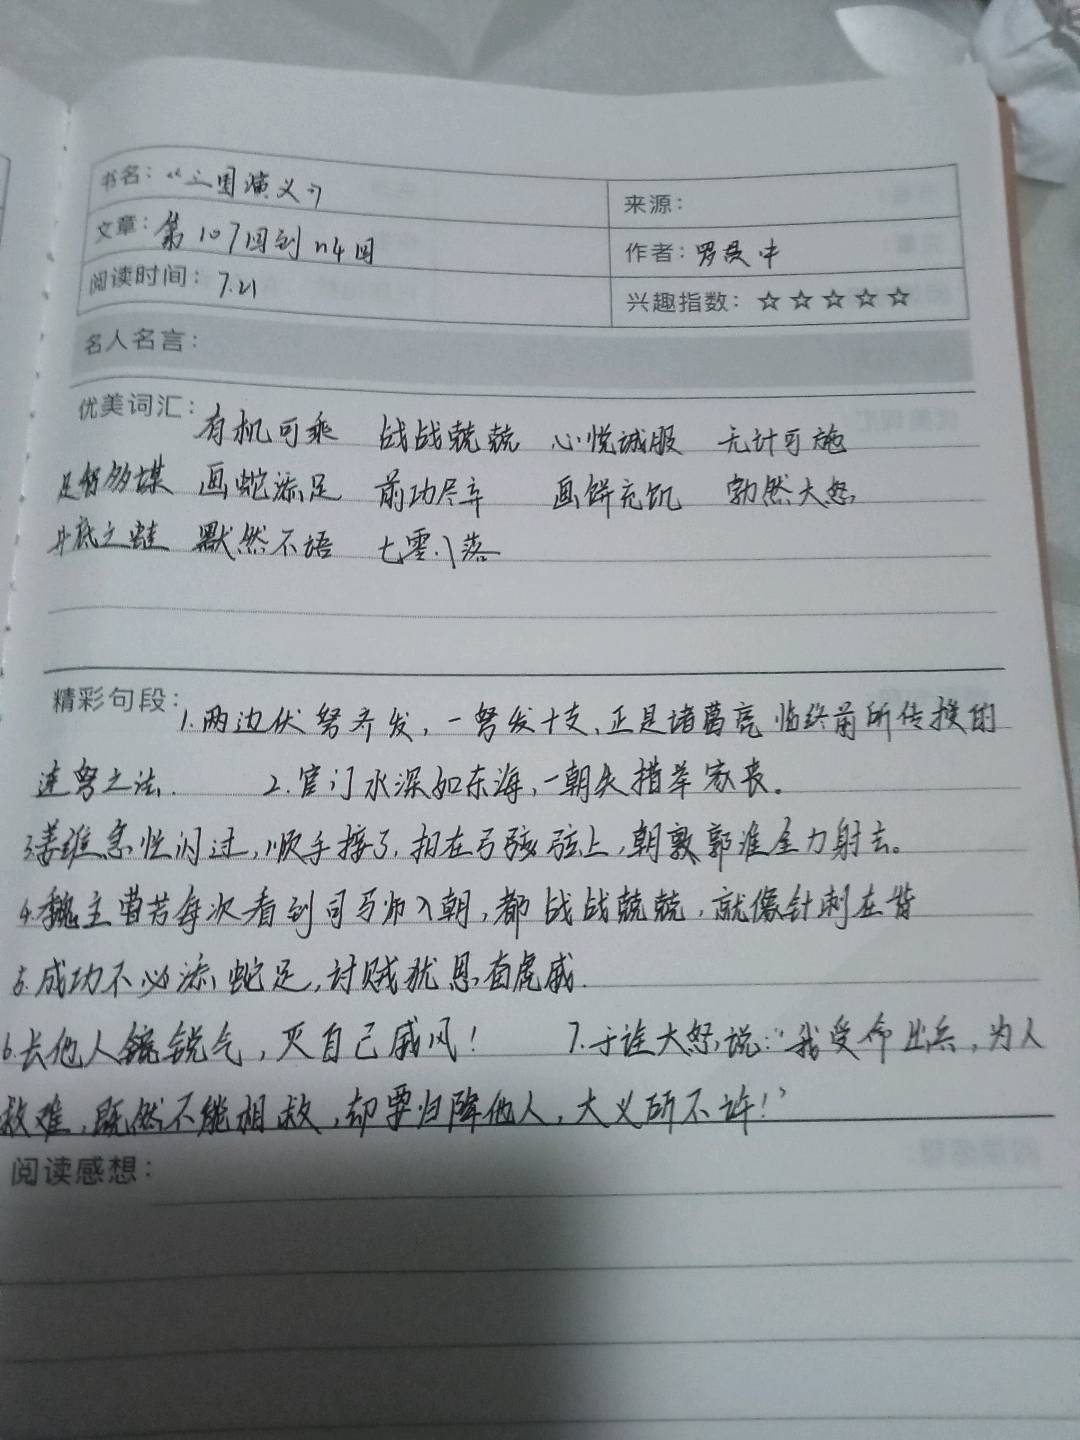 书名：《三国演义》
来源：
文章：第107回到114回
作者：罗贯中
阅读时间：7.21
兴趣指数：☆☆☆☆☆
名人名言：
优美词汇：有机可乘 战战兢兢 心悦诚服 无计可施
足智多谋 画蛇添足 前功尽弃 画饼充饥 勃然大怒
井底之蛙 默然不语 七零八落
精彩句段：1.两边伏弩齐发，一弩发十支，正是诸葛亮临终前所传授的
连弩之法. 2.官门水深如东海，一朝失措举家丧。
3.姜维急忙闪过，顺手接了，扣在弓弦上，朝郭淮全力射去。
4.魏主曹芳每次看到司马师入朝，都战战兢兢，就像针刺在背
5.成功不必添蛇足，讨贼犹思奋虎威.
6.长他人锐气，灭自己威风！ 7.于诠大怒，说："我受命出兵，为人
救难，既然不能相救，却要归降他人，大义所不许！"
阅读感想：